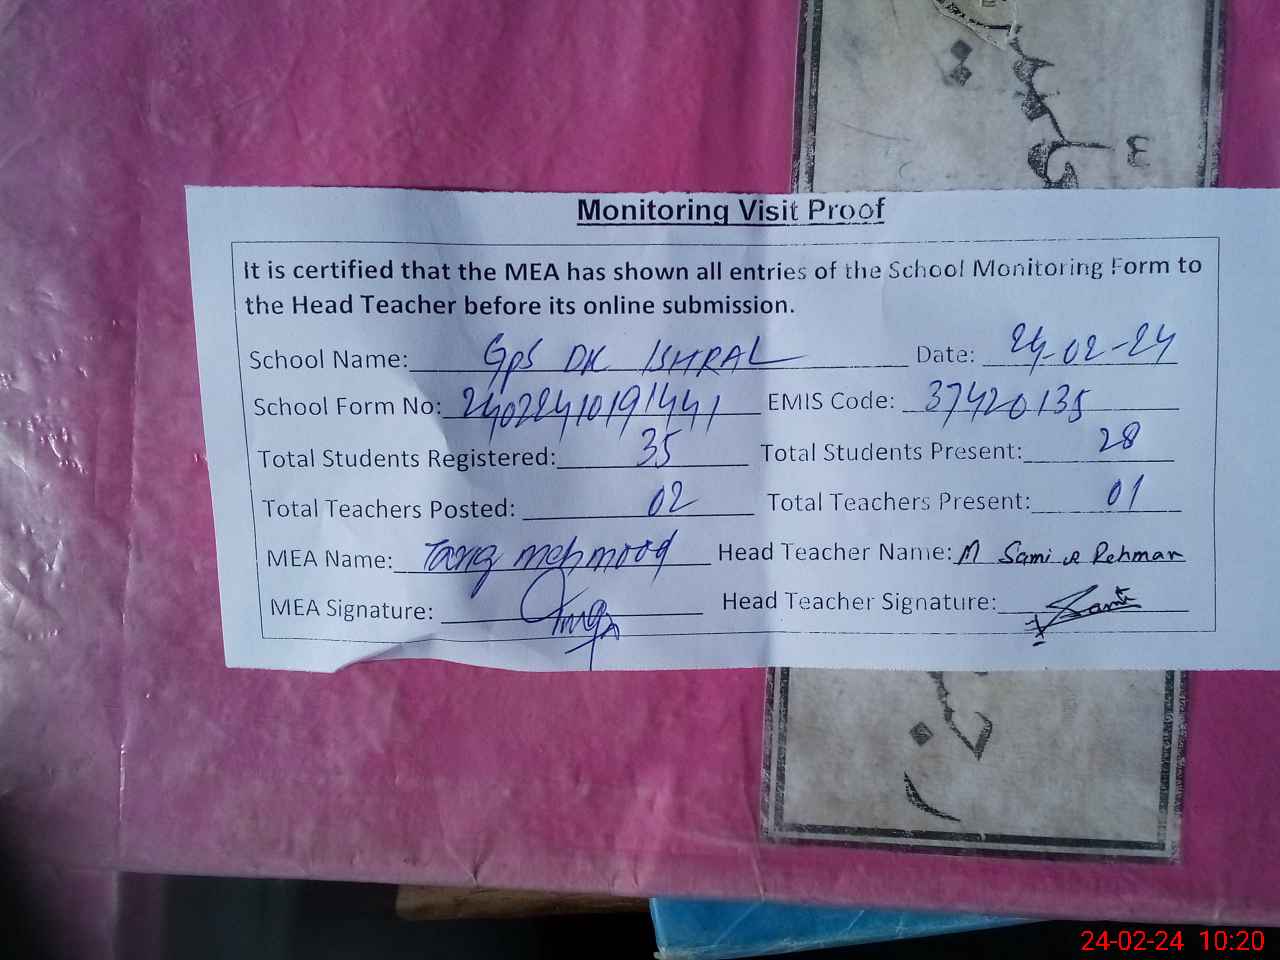 Monitoring Visit Proof
It is certified that the MEA has shown all entries of the School Monitoring Form to
the Head Teacher before its online submission.
School Name: GpS DK ISHRAL Date: 24-02-24
School Form No: 24022410191441 EMIS Code: 37420135
Total Students Registered: 35 Total Students Present: 28
Total Teachers Posted: 02 Total Teachers Present: 01
MEA Name: Tariq mehmood Head Teacher Name: M Sami ur Rehman
MEA Signature: Head Teacher Signature:
24-02-24 10:20